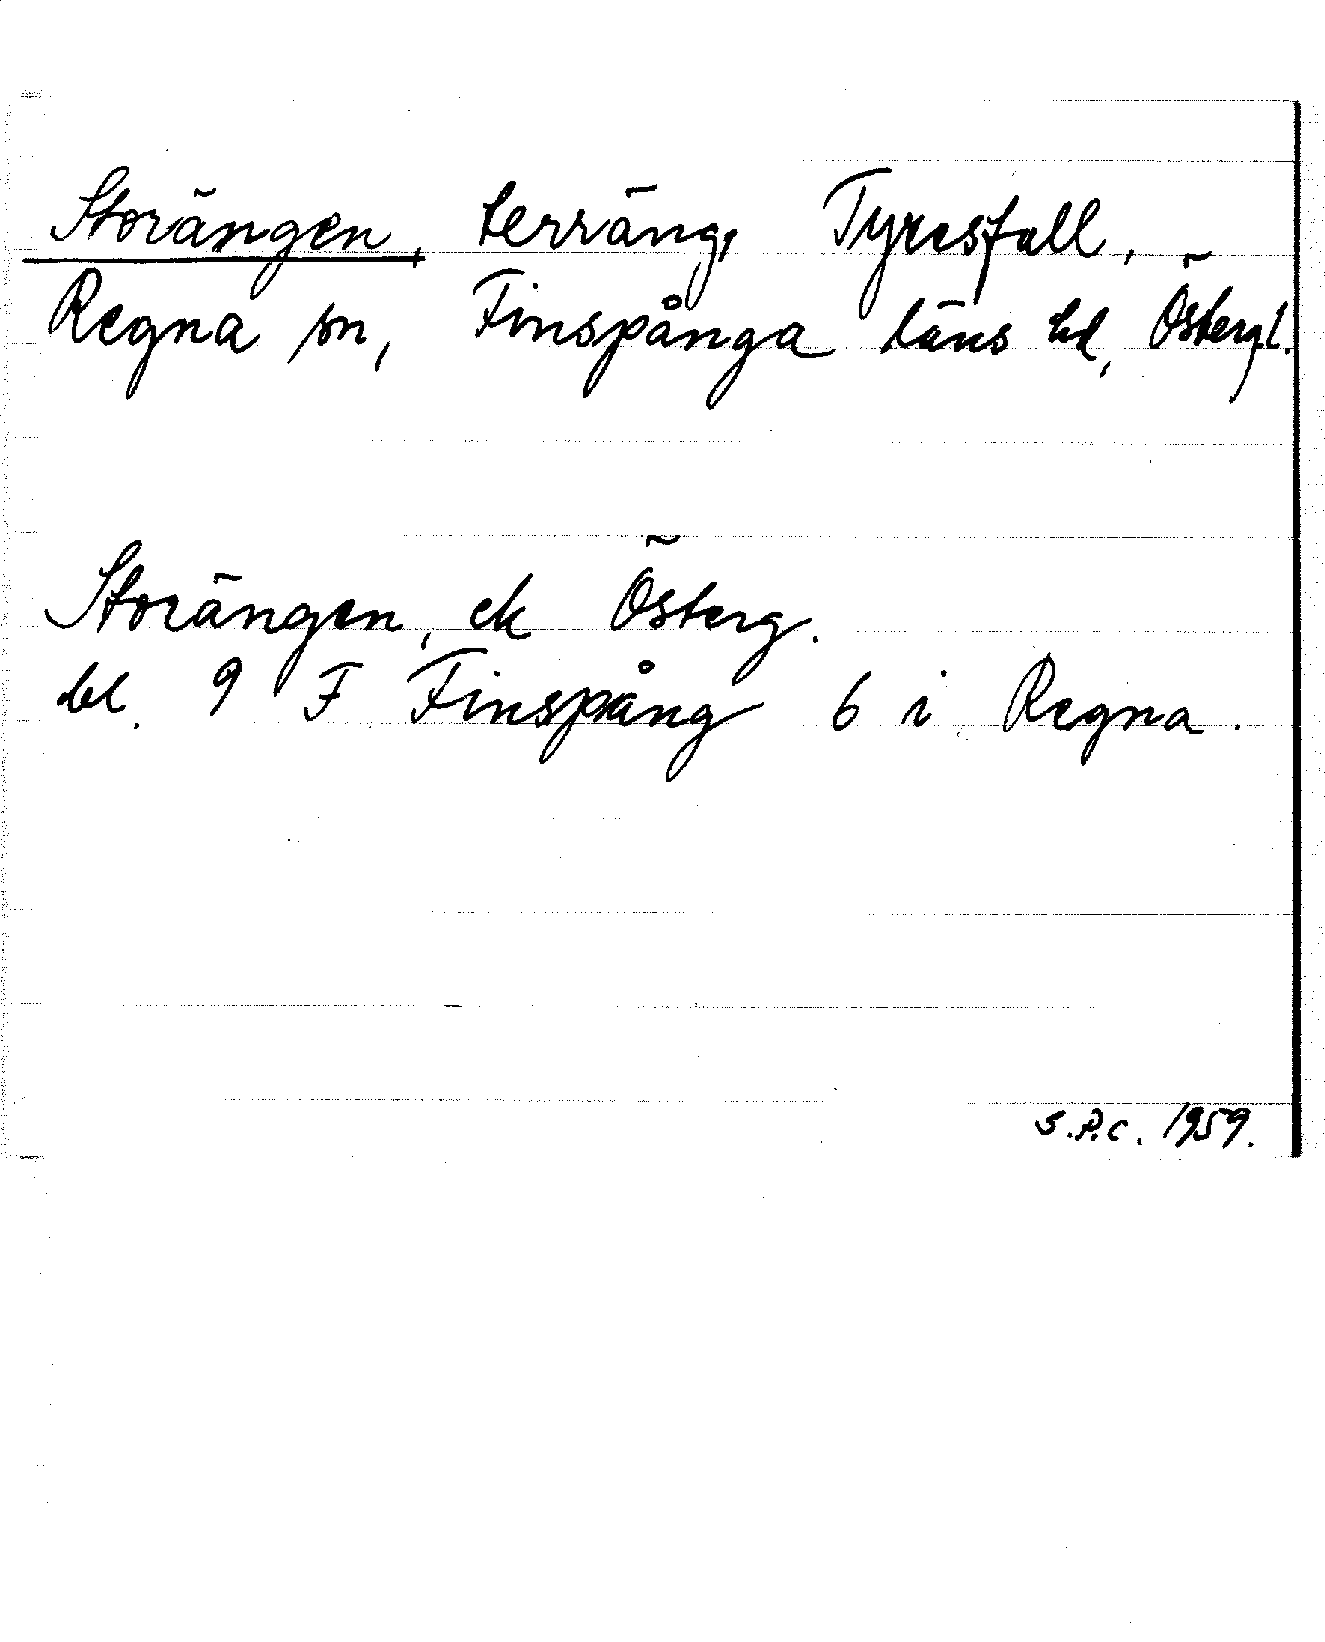 Storängen, terräng, Tyresfall,
Regna sn, Finspånga läns hd, Östergl.
Storängen, ek Österg.
bl. 9 F Finspång 6 i Regna.
S.P.C. 1959.